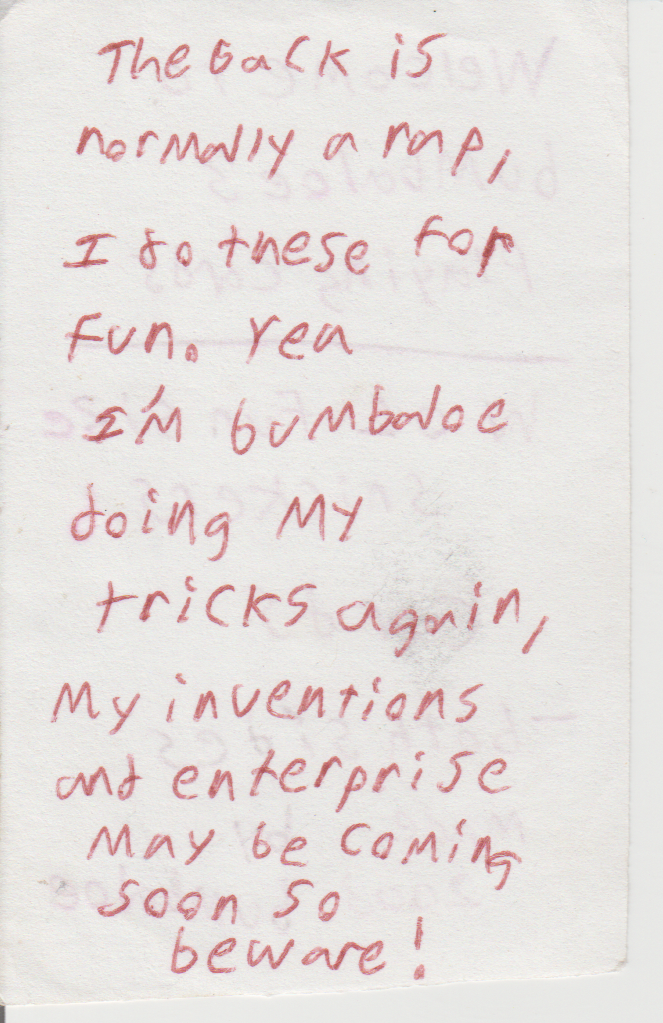 The back is
normally a rap,
I do these for
fun. Yea
I'm bumbaloe
doing My
tricks again,
My inventions
and enterprise
May be coming
soon so
beware!